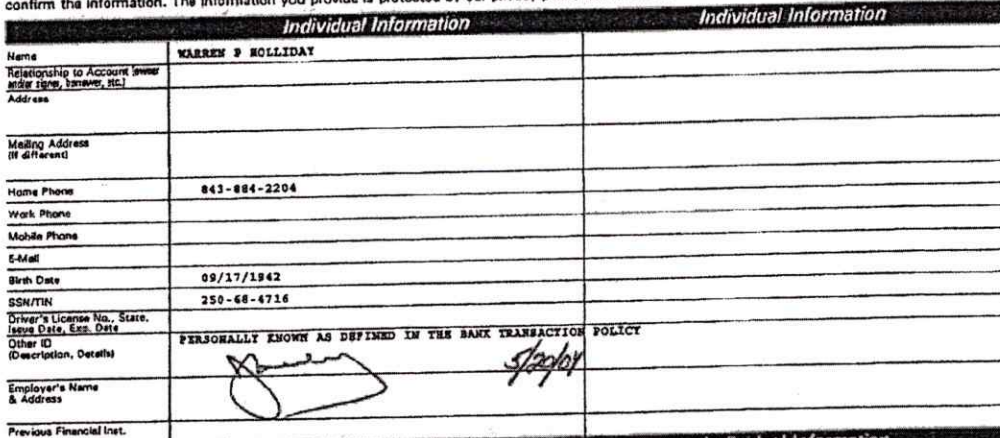 confirm the information. The information you provide is protected by our
Individual Information Individual Information
Name WARREN P HOLLIDAY
Relationship to Account (owner
and/or signer, borrower, etc.)
Address
Mailing Address
(if different)
Home Phone 843-884-2204
Work Phone
Mobile Phone
E-Mail
Birth Date 09/17/1942
SSN/TIN 250-68-4716
Driver's License No., State,
Issue Date, Exp. Date
Other ID PERSONALLY KNOWN AS DEFINED IN THE BANK TRANSACTION POLICY
(Description, Details)
5/20/04
Employer's Name
& Address
Previous Financial Inst.